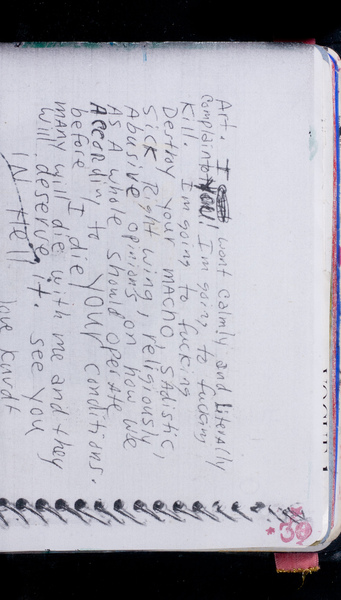 Art. I wont calmly and literally
complain to you! I'm going to fucking
Kill. I'm going to fucking
Destroy your macho, sadistic,
Sick Right wing, religiously
Abusive opinions on how we
As A whole should operate
According to YOUR conditions.
before I die
many will die with me and they
will deserve it. see you
IN HELL
love Kurdt